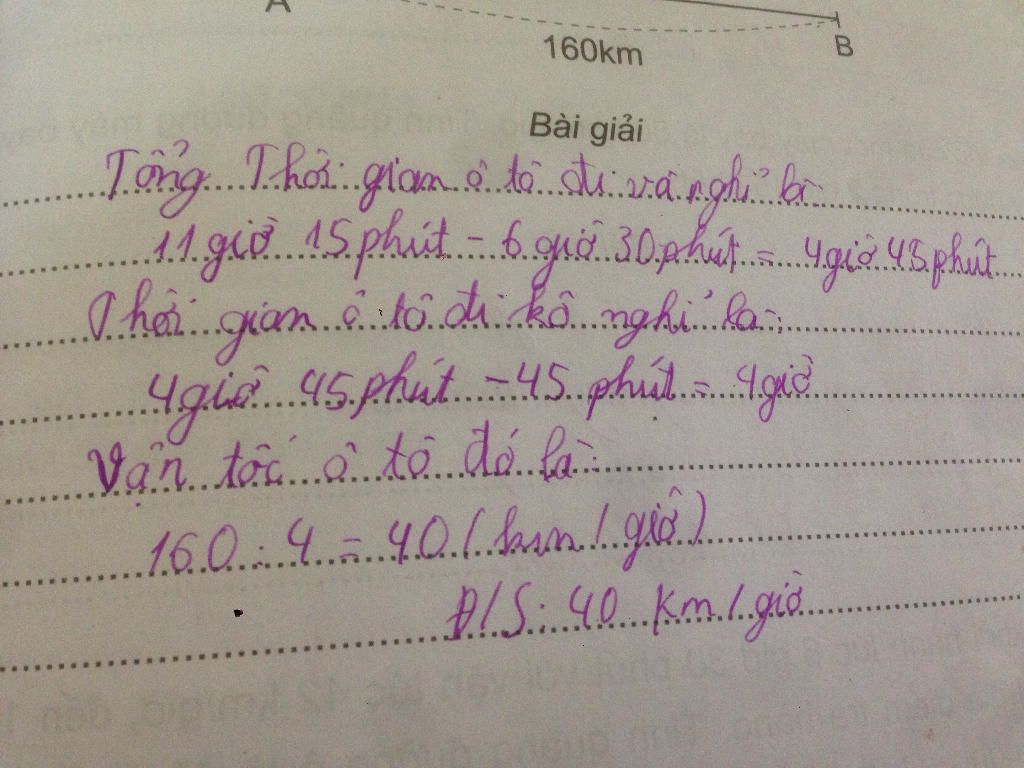 A
160km
B
Bài giải
Tổng Thời gian ô tô đi và nghỉ là:
11 giờ 15 phút - 6 giờ 30 phút = 4 giờ 45 phút
Thời gian ô tô đi kô nghỉ là:
4 giờ 45 phút - 45 phút = 4 giờ
Vận tốc ô tô đó là:
160 : 4 = 40 (km / giờ)
Đ/S: 40 km / giờ